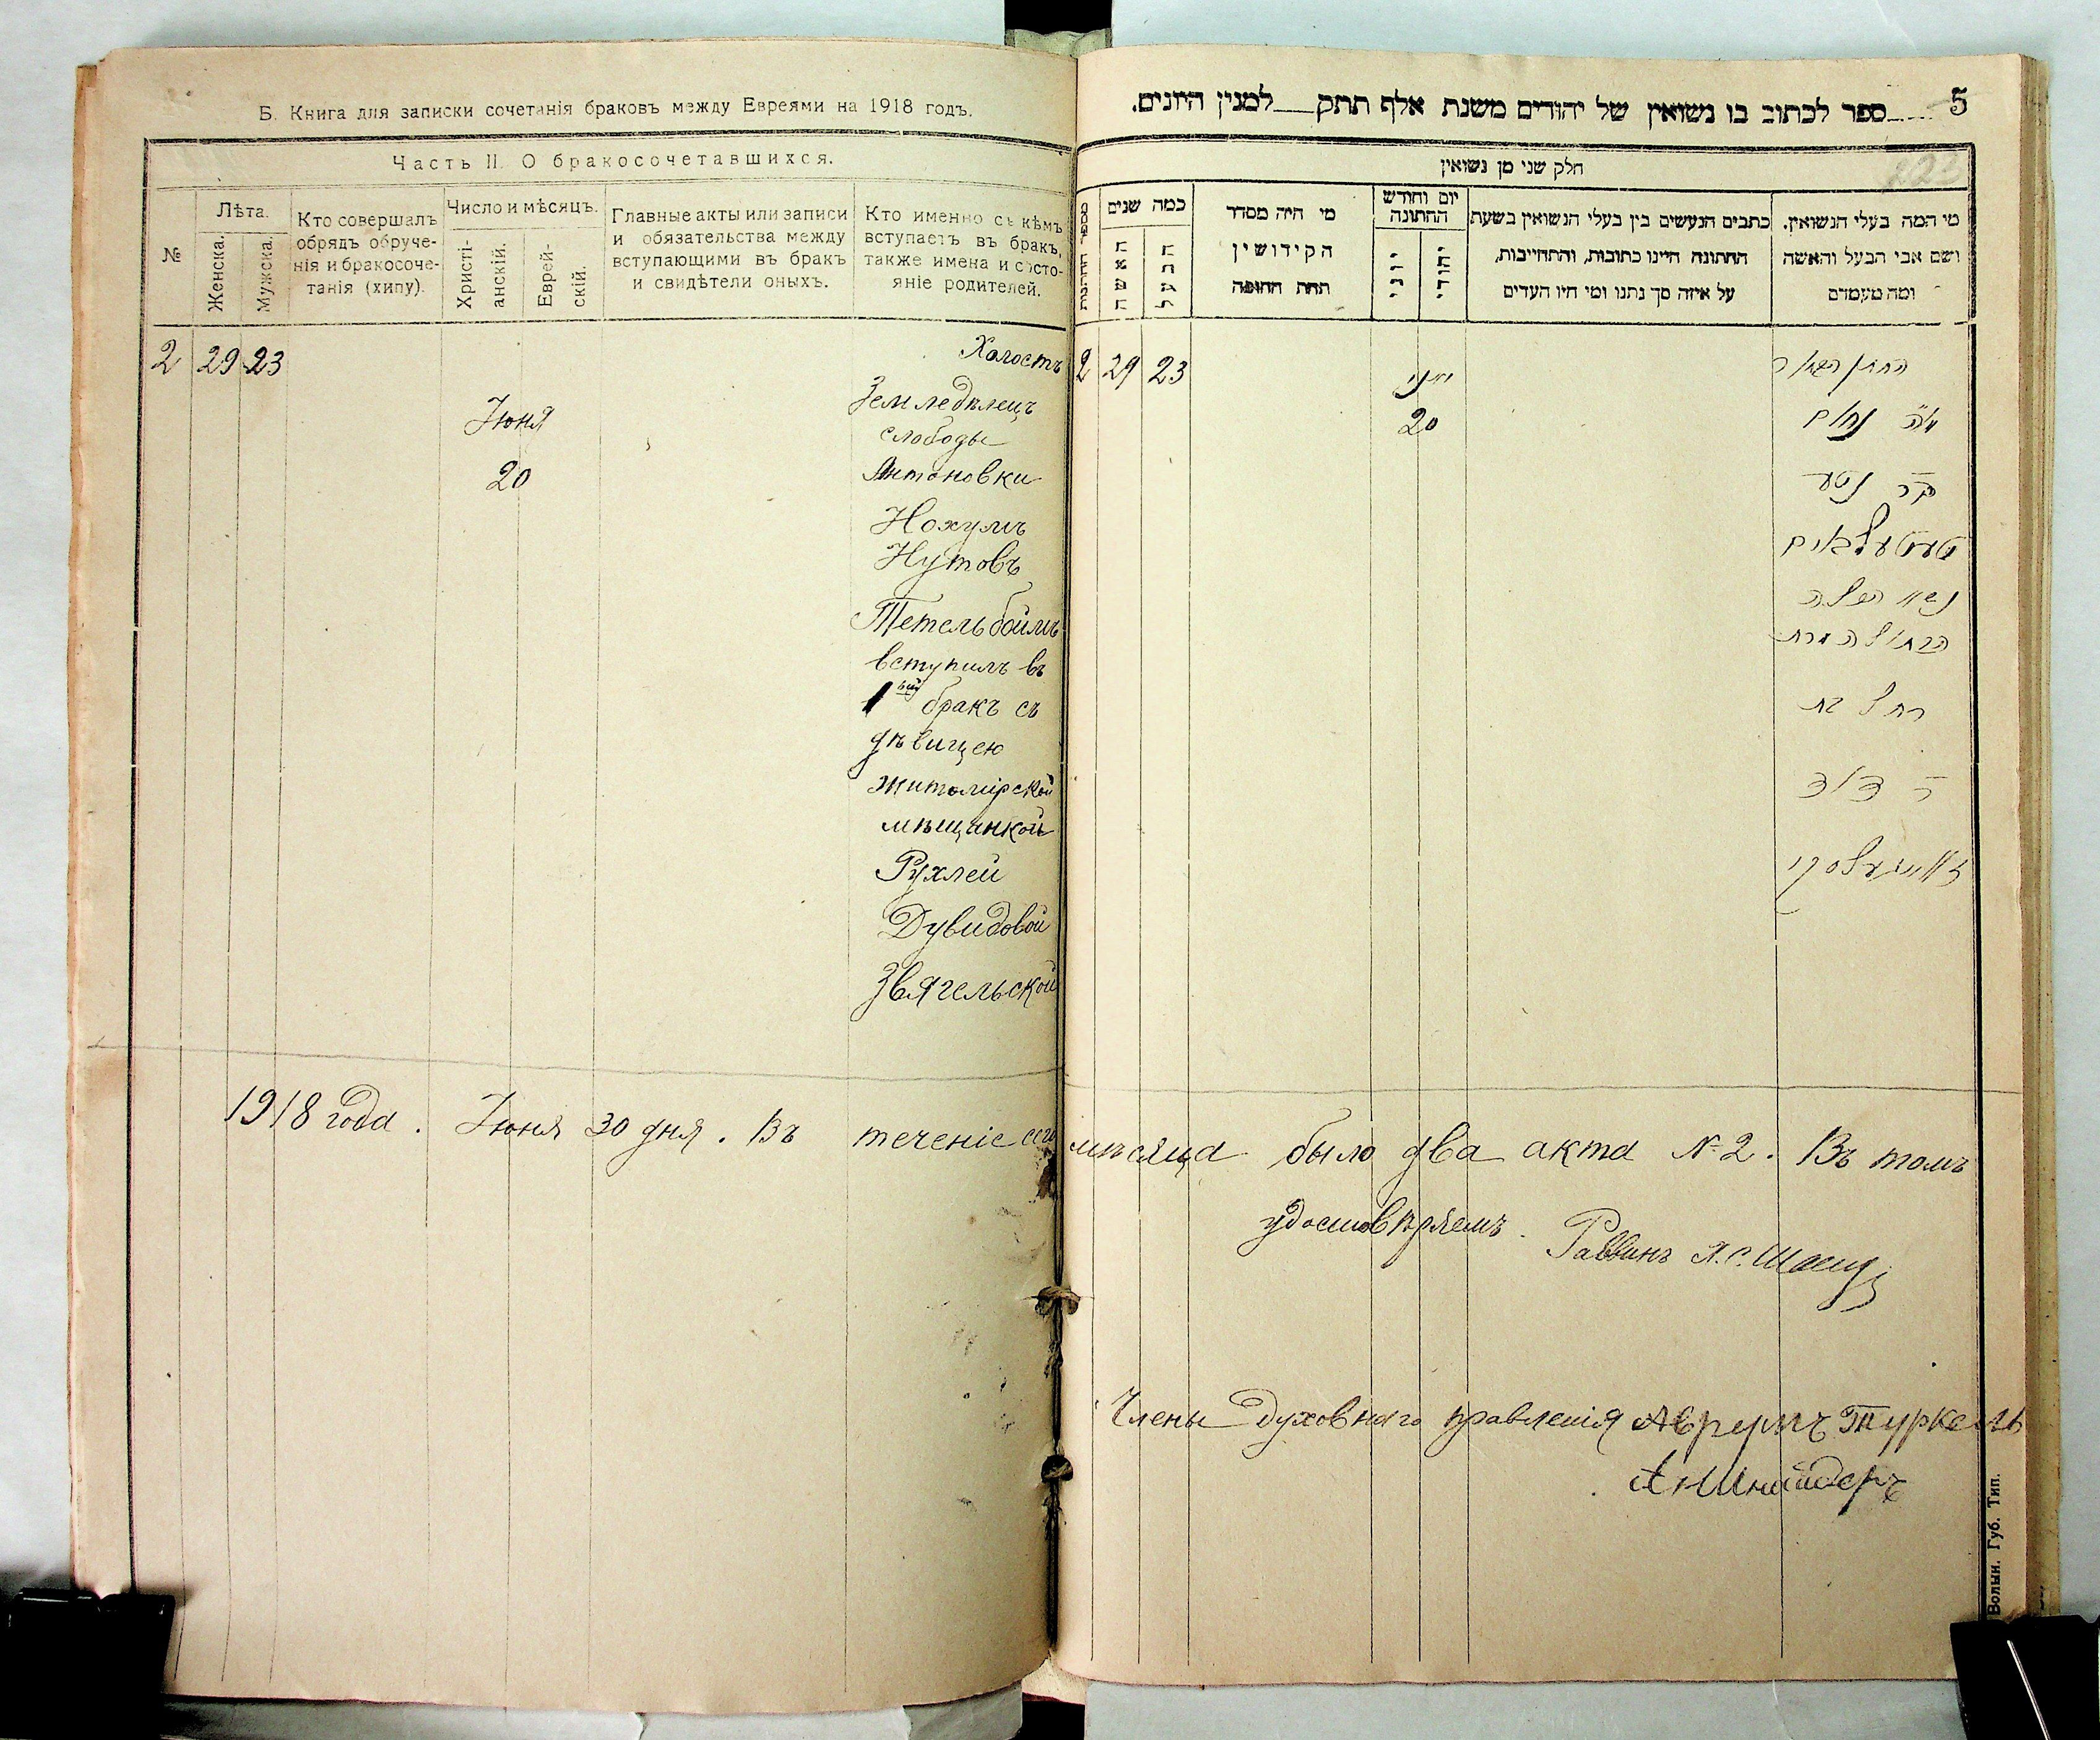 Б. Книга для записки сочетанія браковъ между Евреями на 1918 годъ.
Часть II. О бракосочетавшихся.
№
Лѣта.
Женска.
Мужска.
Кто совершалъ
обрядъ обруче-
нія и бракосоче-
танія (хипу).
Число и мѣсяцъ.
Христі-
анскій.
Еврей-
скій.
Главные акты или записи
и обязательства между
вступающими въ бракъ
и свидѣтели оныхъ.
Кто именно съ кѣмъ
вступаетъ въ бракъ,
также имена и состо-
яніе родителей.
2 29 23
Июня
20
Холостъ
Земледѣлецъ
слободы
Антоновки
Нохумъ
Нутовъ
Тетельбоймъ
вступилъ въ
1ый бракъ съ
дѣвицею
житомірской
мѣщанкой
Рухлей
Дувидовой
Звягельской
5
ספר לכתוב בו נשואין של יהודים משנת אלף תתק למנין היונים.
חלק שני מן נשואין
מי המה בעלי הנשואין.
ושם אבי הבעל והאשה
ומה מעמדם
כתבים הנעשים בין בעלי הנשואין בשעת
החתונה היינו כתובות, והתחייבות,
על איזה סך נתנו ומי היו העדים
יום וחודש
החתונה
יהודי
יוני
מי היה מסדר
הקידושין
תחת החופה
כמה שנים
הבעל
האשה
2 29 23
יוני
20
החתן הבחור
נחום
נטע
טעטעלבוים
הבתולה
רחל בת
ר דוד
1918 года. Июня 30 дня. Въ теченіе сего мѣсяца было два акта № 2. Въ томъ
удостовѣряемъ. Раввинъ
Члены духовнаго правленія Аврумъ Туркель
А Шнайдеръ
Волын. Губ. Тип.